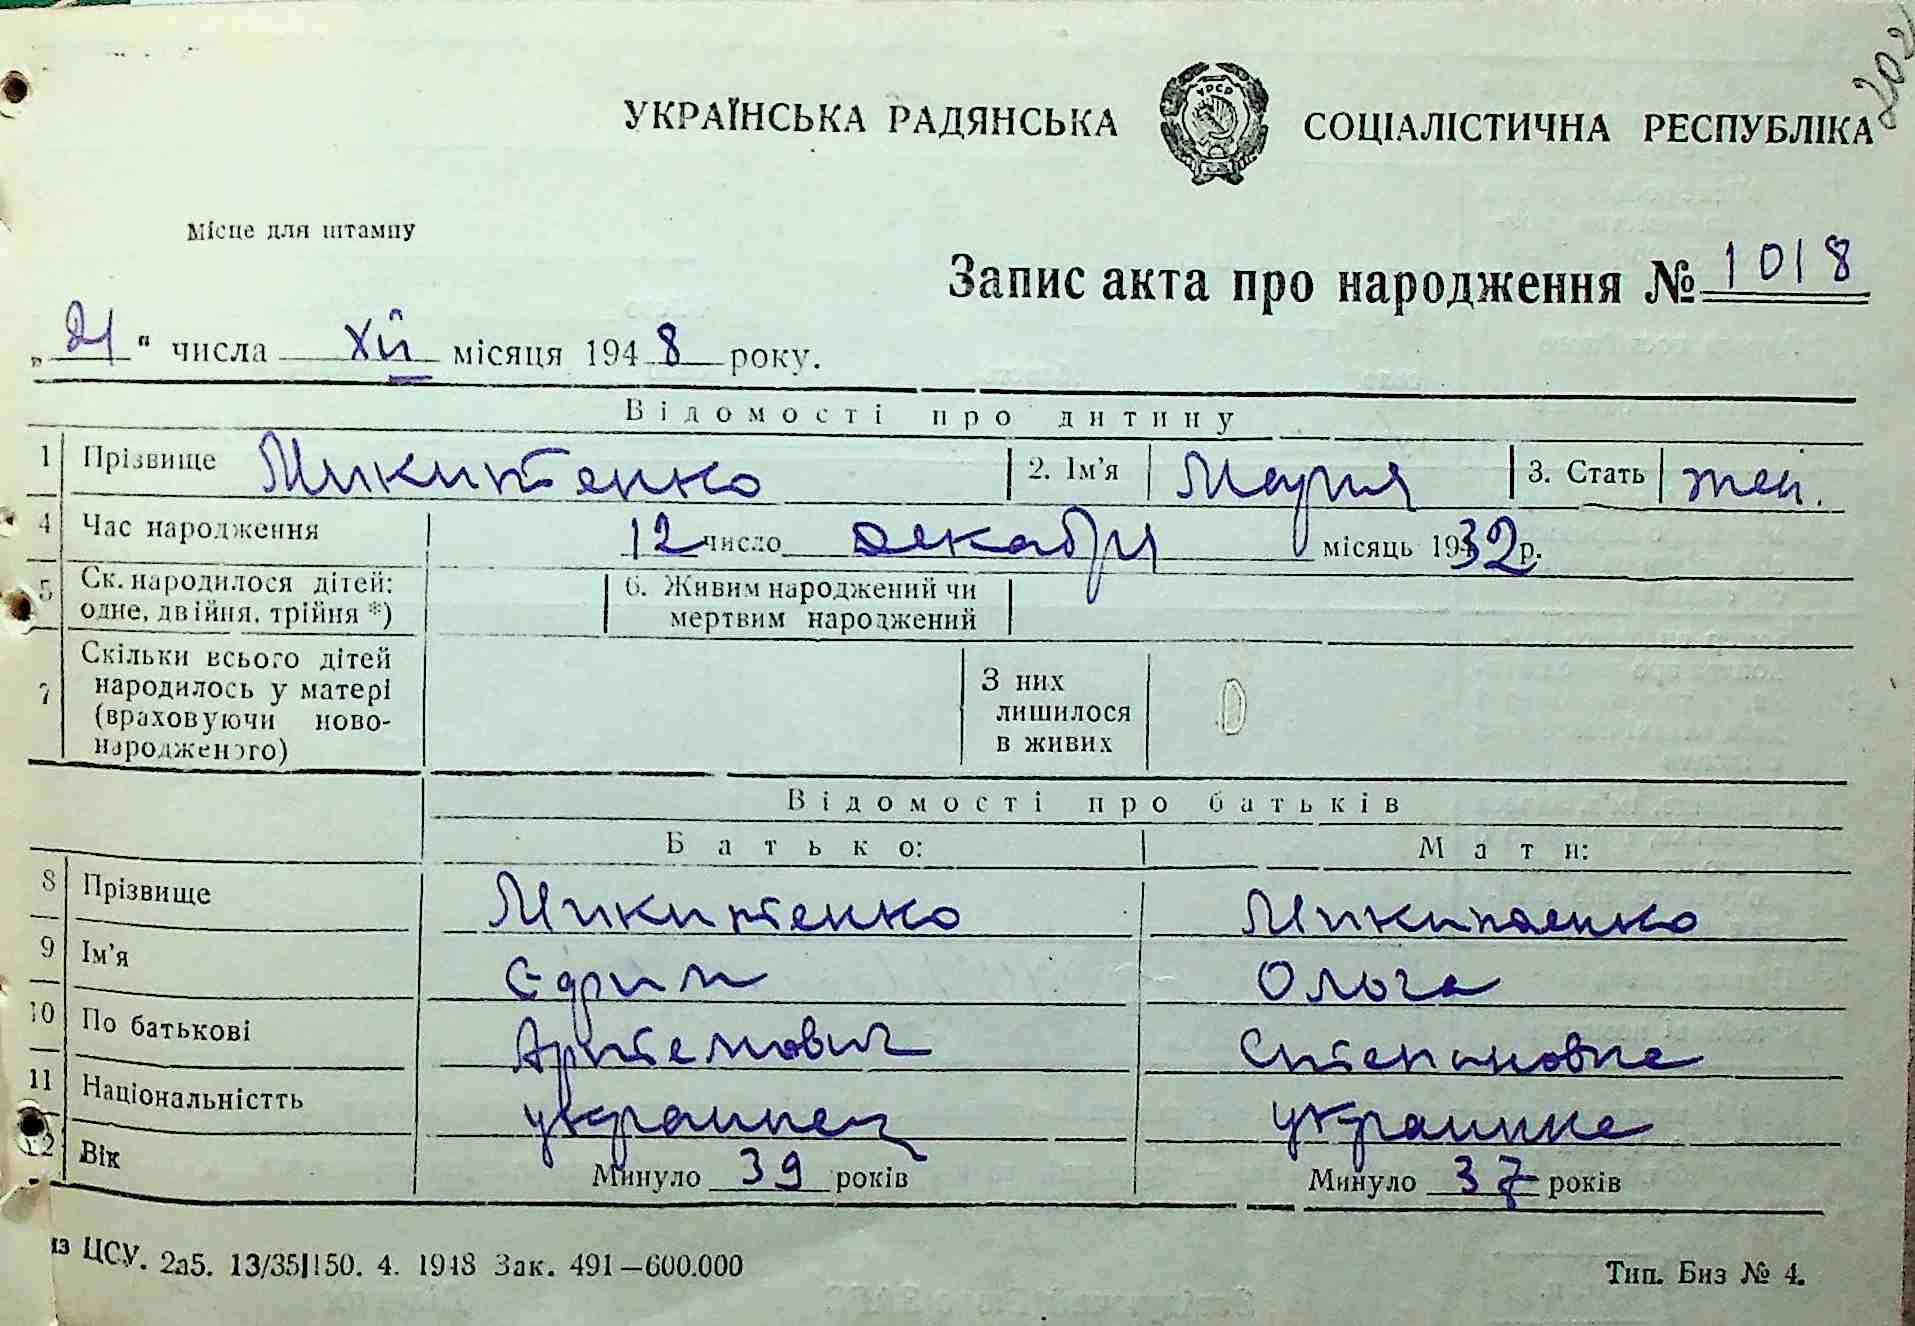 202
УКРАЇНСЬКА РАДЯНСЬКА СОЦІАЛІСТИЧНА РЕСПУБЛІКА
УРСР
Місце для штампу
Запис акта про народження № 1018
„21“ числа XII місяця 1948 року.
Відомості про дитину
1 Прізвище Микитенко 2. Ім'я Мария 3. Стать жен.
4 Час народження 12 число декабря місяць 1932 р.
5 Ск. народилося дітей: одне, двійня, трійня *) 6. Живим народжений чи мертвим народжений
7 Скільки всього дітей народилось у матері (враховуючи ново-народженого) З них лишилося в живих
Відомості про батьків
Батько: Мати:
8 Прізвище Микитенко Микитенко
9 Ім'я Ольга
10 По батькові Артемович Степановна
11 Національністть украинец украинка
12 Вік Минуло 39 років Минуло 37 років
из ЦСУ. 2а5. 13/35|150. 4. 1948 Зак. 491—600.000 Тип. Биз № 4.